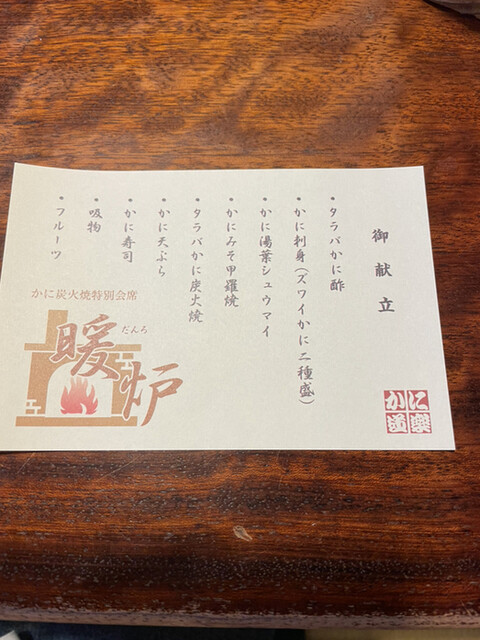 御献立
・タラバかに酢
・かに刺身(ズワイかに二種盛)
・かに湯葉シュウマイ
・かにみそ甲羅焼
・タラバかに炭火焼
・かに天ぷら
・かに寿司
・吸物
・フルーツ
かに炭火焼特別会席
暖炉
だんろ
かに道楽